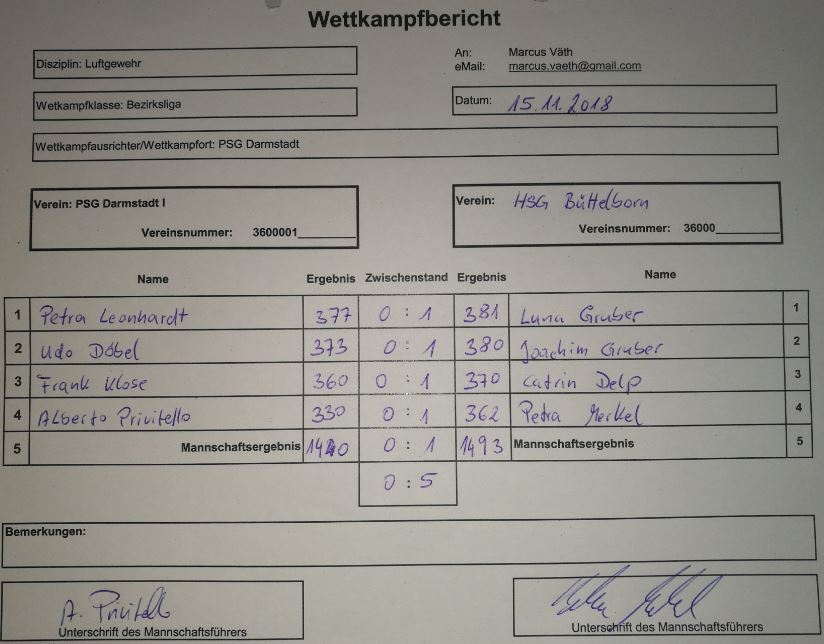 Wettkampfbericht
Disziplin: Luftgewehr
An: Marcus Väth
eMail: marcus.vaeth@gmail.com
Wetkampfklasse: Bezirksliga
Datum: 15.11.2018
Wettkampfausrichter/Wettkampfort: PSG Darmstadt
Verein: PSG Darmstadt I
Vereinsnummer: 3600001
Verein: HSG Büttelborn
Vereinsnummer: 36000
Name Ergebnis Zwischenstand Ergebnis Name
1 Petra Leonhardt 377 0 : 1 381 Luna Gruber 1
2 Udo Döbel 373 0 : 1 380 Joachim Gruber 2
3 Frank Klose 360 0 : 1 370 Catrin Delp 3
4 Alberto Privitello 330 0 : 1 362 Petra Merkel 4
5 Mannschaftsergebnis 1440 0 : 1 1493 Mannschaftsergebnis 5
0 : 5
Bemerkungen:
A. Privitello
Unterschrift des Mannschaftsführers
Unterschrift des Mannschaftsführers